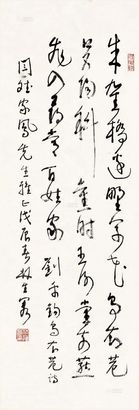 朱雀橋邊野草花烏衣
巷口夕陽斜舊時王謝堂前燕
飛入尋常百姓家劉禹錫烏衣巷詩
家風先生雅正戊辰春